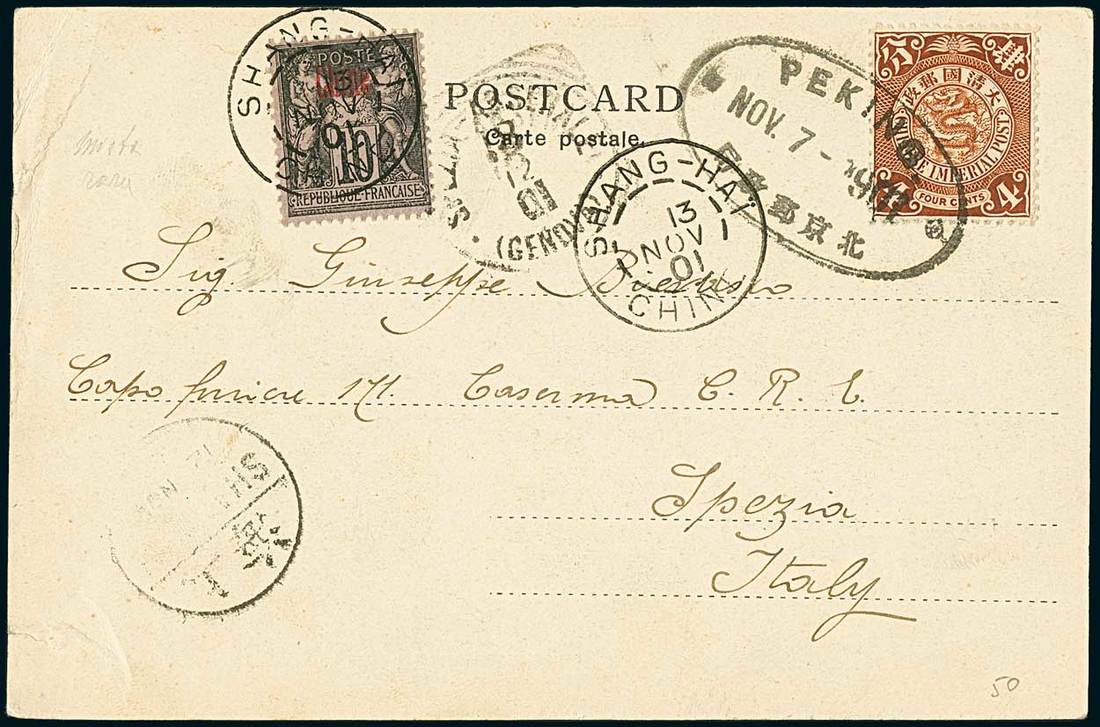 POSTE
CHINE
10
REPUBLIQUE FRANÇAISE
SHANG-HAI
13
NOV
01
CHINE
POSTCARD
Carte postale.
12
01
(GENOVA)
SHANG-HAI
13
NOV
01
CHINE
PEKING
NOV. 7 - 1901
北京
大清國郵政
CHINESE IMPERIAL POST
4 FOUR CENTS 4
Sig. Giuseppe
Capo furiere 171. Caserma C. R. E.
Spezia
Italy
50